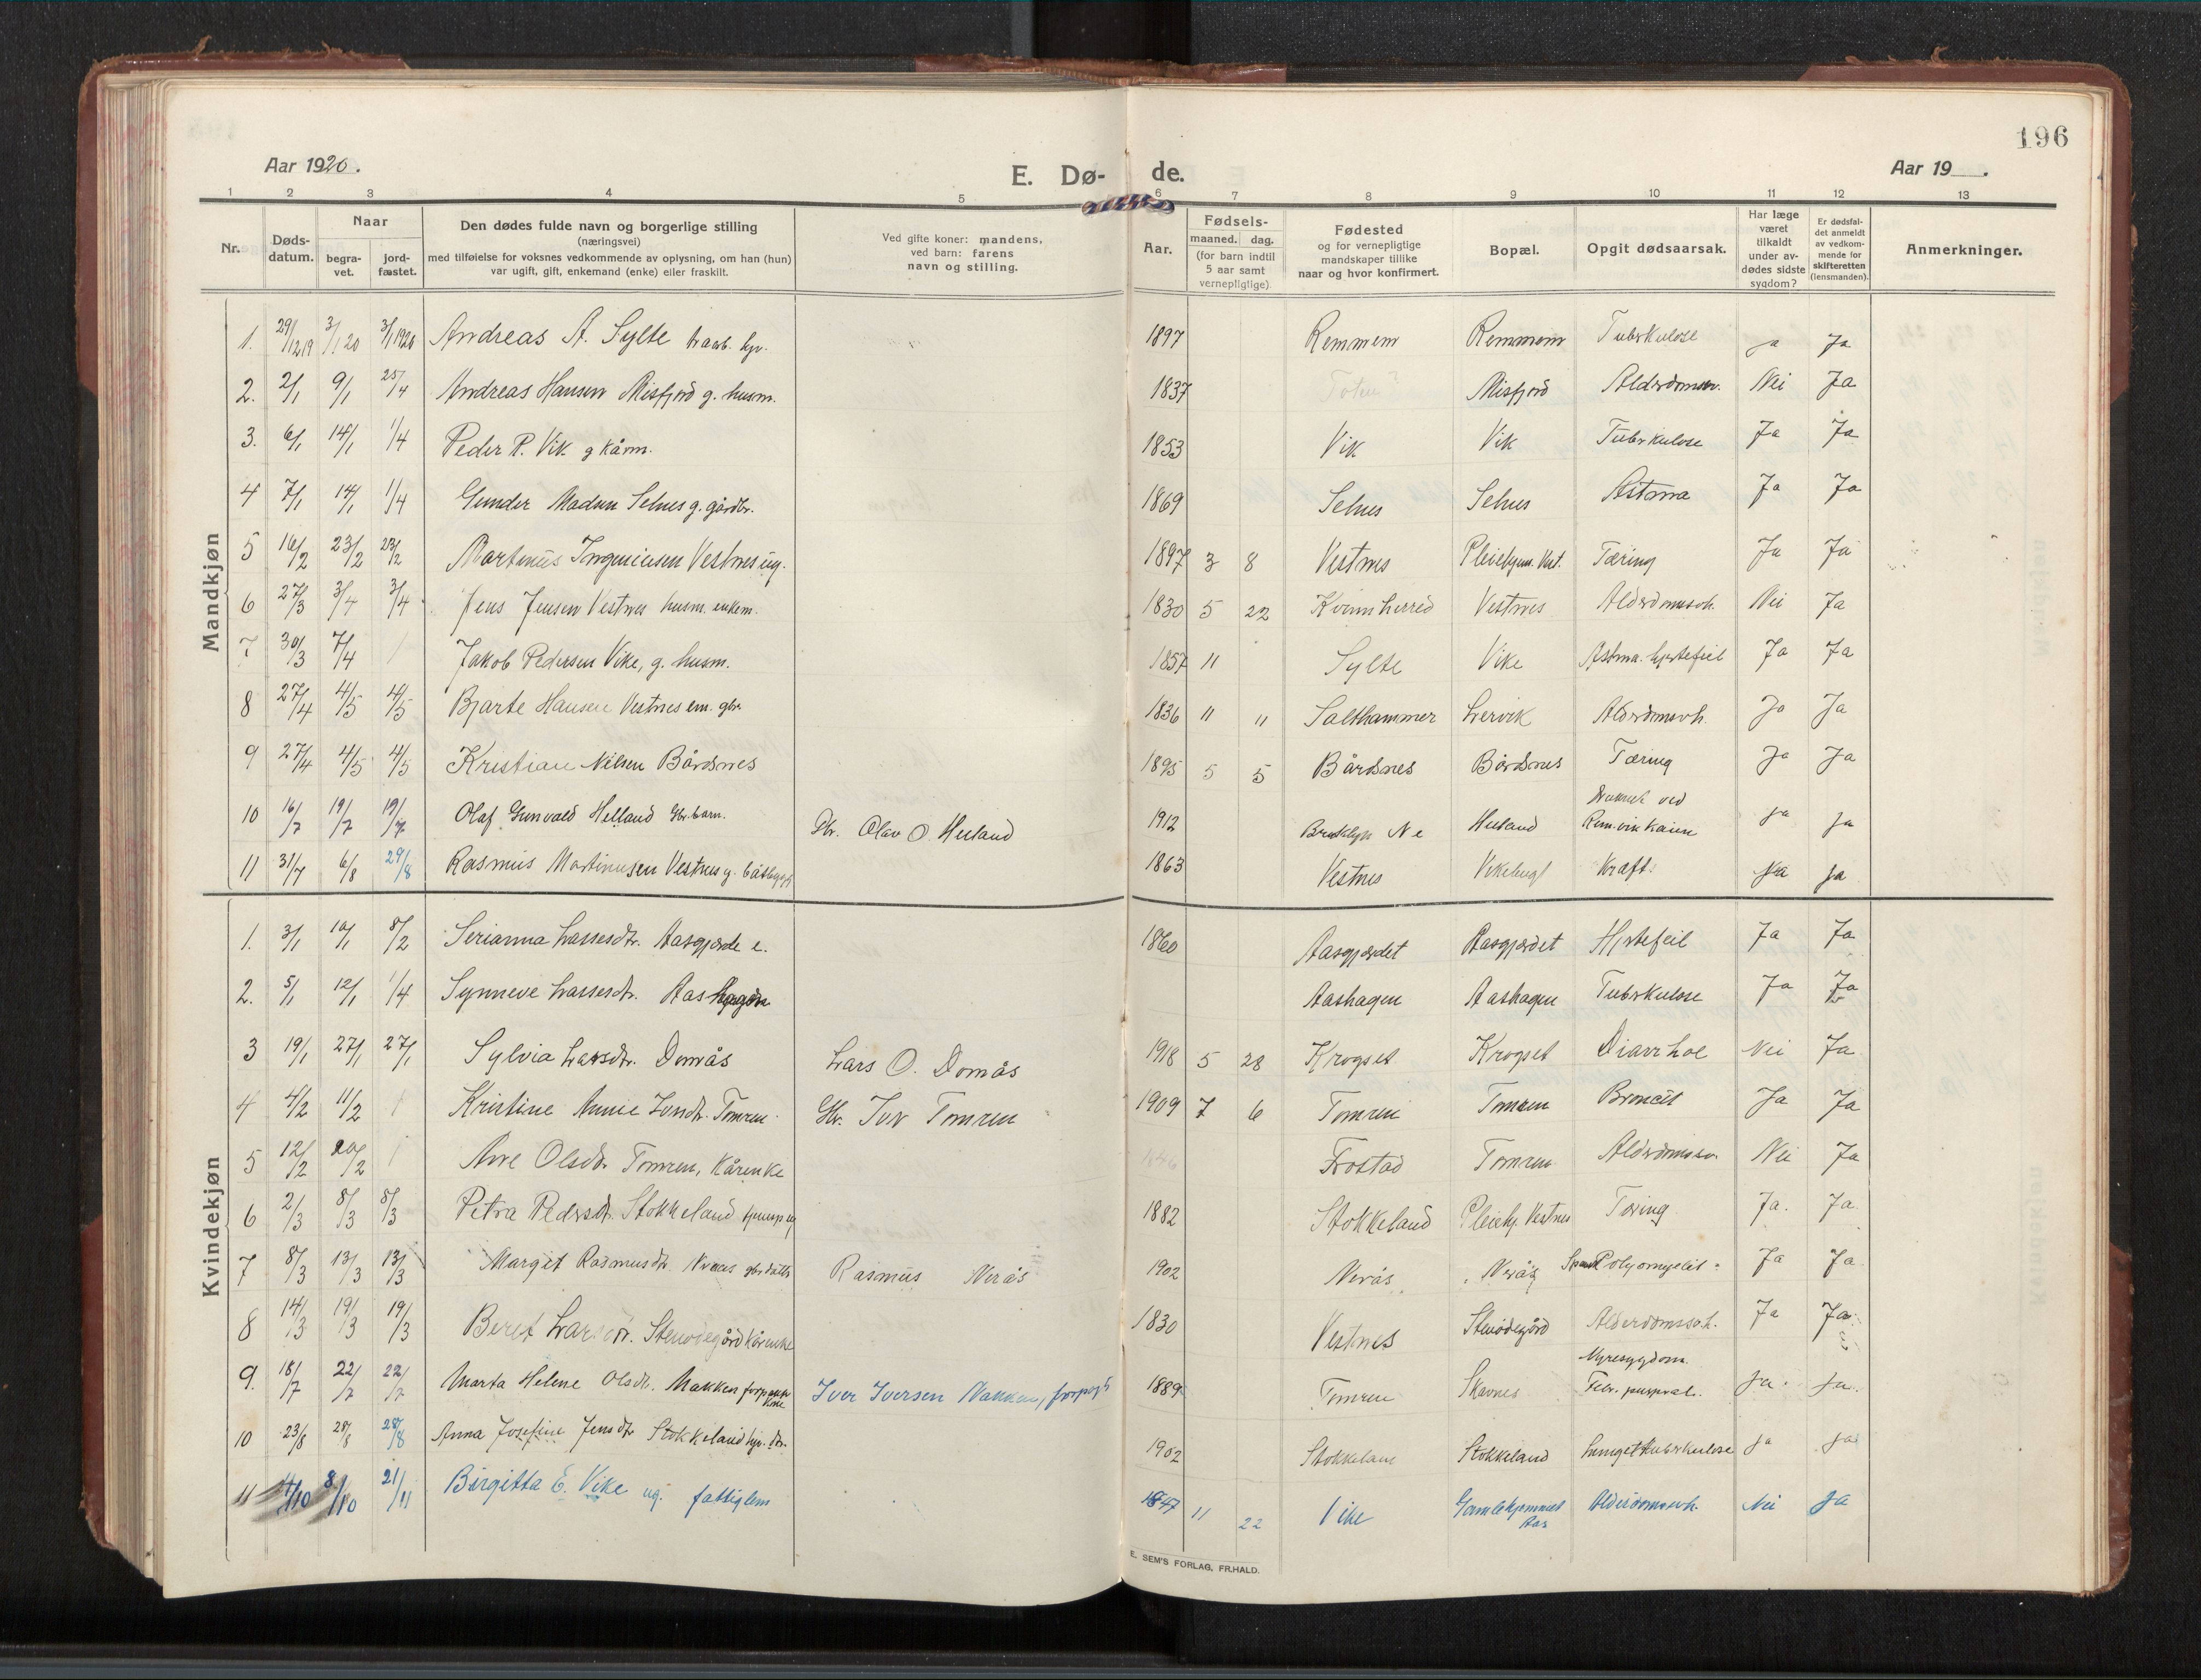 196
Aar 1920.
E. Dø- de.
Aar 19 .
1 2 3 4 5 6 7 8 9 10 11 12 13
Nr.
Døds-
datum.
Naar
begra-
vet.
jord-
fæstet.
Den dødes fulde navn og borgerlige stilling
(næringsvei)
med tilføielse for voksnes vedkommende av oplysning, om han (hun)
var ugift, gift, enkemand (enke) eller fraskilt.
Ved gifte koner: mandens,
ved barn: farens
navn og stilling.
Aar.
Fødsels-
maaned. dag.
(for barn indtil
5 aar samt
vernepligtige).
Fødested
og for vernepligtige
mandskaper tillike
naar og hvor konfirmert.
Bopæl.
Opgit dødsaarsak.
Har læge
været
tilkaldt
under av-
dødes sidste
sygdom?
Er dødsfal-
det anmeldt
av vedkom-
mende for
skifteretten
(lensmanden).
Anmerkninger.
Mandkjøn
1. 29/12 19 3/1 20 3/1 1920 Andreas A. Sylte 1897 Remmem Remmem Tuberkulose ja Ja
2. 2/1 9/1 25/4 Andreas Hansen Misfjord g. husm. 1837 Misfjord Alderdomssv. Nei Ja
3. 6/1 14/1 1/4 Peder P. Vik g kårm. 1853 Vik Vik Tuberkulose Ja Ja
4 7/1 14/1 1/4 Gunder Madsen Selnes g. gårdbr. 1869 Selnes Selnes Astma Ja Ja
5 16/2 23/2 23/2 Martinus Vestnes ug. 1897 3 8 Vestnes Pleiehjem. Vest. Tæring Ja Ja
6 27/3 3/4 3/4 Jens Jensen Vestnes husm. enkem. 1830 5 22 Kvinnherred Vestnes Alderdomssvh. Nei Ja
7 30/3 7/4 / Jakob Pedersen Vike, g. husm. 1857 11 Sylte Vike Astma. hjertefeil Ja Ja
8 27/4 4/5 4/5 Bjarte Hansen Vestnes em. gbr. 1836 11 11 Salthammer Lervik Alderdomssvh. Ja Ja
9 27/4 4/5 4/5 Kristian Nilsen Bårdsnes 1895 5 5 Bårdsnes Bårdsnes Tæring Ja Ja
10 16/7 19/7 19/7 Olaf Gunvald Helland Gbr. barn. Gbr. Olav O. Helland 1912 Brooklyn N e Helland Druknet ved
Remvikkaien ja ja
11 31/7 6/8 29/8 Rasmus Martinusen Vestnes g. båtbygg. 1863 Vestnes Vikebugt Kræft. ja ja
Kvindekjøn
1. 3/1 10/1 8/2 Serianna Lassesdtr. Aasgjerde e. 1860 Aasgjerdet Aasgjerdet Hjertefeil Ja Ja
2. 5/1 12/1 1/4 Synneve Lassesdtr. Aashagen Aashagen Aashagen Tuberkulose Ja Ja
3 19/1 27/1 27/1 Sylvia Larsdtr. Domås Lars O. Domås 1918 5 28 Krogset Krogset Diarrhoe Nei Ja
4 4/2 11/2 / Kristine Annie Iversdtr. Tomren. Gbr. Iver Tomren 1909 7 6 Tomren Tomren Broncit Ja Ja
5 12/2 20/2 / Ane Olsdtr. Tomren, Kårenke Frostad Tomren Alderdomssv. Nei Ja
6 2/3 8/3 8/3 Petra Pedersdtr. Stokkeland 1882 Stokkeland Pleiehj. Vestnes Tæring Ja. Ja.
7 8/3 13/3 13/3 Margit Rasmusdtr. Nerås gbr datter Rasmus Nerås 1902 Nerås Nerås Polyomyelit Ja Ja.
8 14/3 19/3 19/3 Beret Larsdtr. Stenodegård kårenke 1830 Vestnes Stenodegård Alderdomssvh. Ja Ja.
9. 18/7 22/7 22/7 Marta Helene Olsdtr. Nakken forpagt.
kone Iver Iversen Nakken, forpagt 1889 Tomren Skavnes Nyresygdom
Febr. puerperal. Ja. Ja.
10 23/8 28/8 28/8 Anna Josefine Jensdtr Stokkeland 1902 Stokkeland Stokkeland Lungetuberkulose ja ja
11 1/10 8/10 21/11 Birgitta E. Vike ug. fattiglem 1847 11 22 Vike Gamlehjemmet
Aas Alderdomssvh. Nei ja
E. SEM'S FORLAG, FR.HALD.